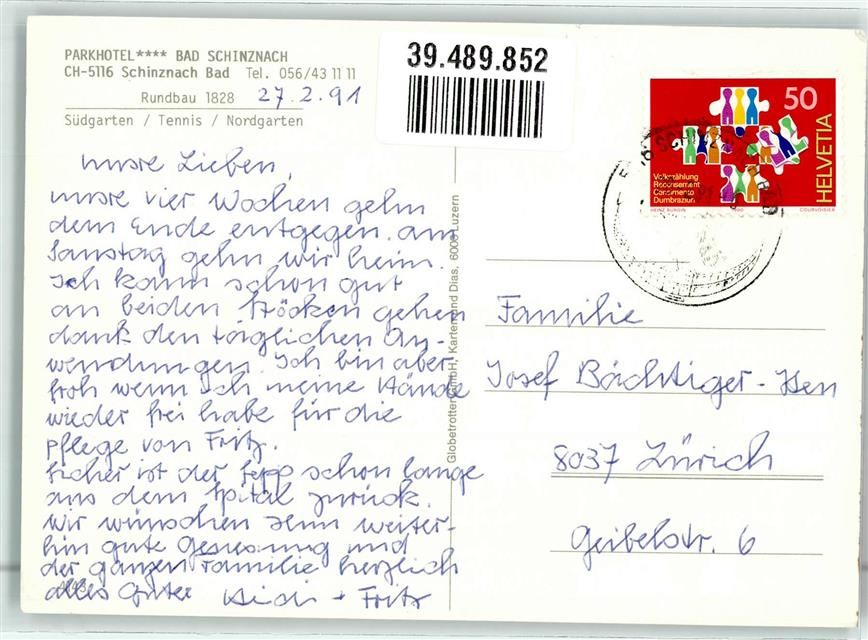 PARKHOTEL**** BAD SCHINZNACH
CH-5116 Schinznach Bad Tel. 056/43 11 11
Rundbau 1828 27.2.91
Südgarten / Tennis / Nordgarten
39.489.852
50
HELVETIA
Volkszählung
Recensement
Censimento
Dumbraziun
HEINZ BÜRGIN 1990 COURVOISIER
unsre Lieben,
unsre vier Wochen gehn
dem Ende entgegen. am
Samstag gehn wir heim.
Ich kann schon gut
an beiden Stöcken gehen
dank den täglichen An-
wendungen. Ich bin aber
froh wenn ich meine Hände
wieder frei habe für die
pflege von Fritz.
Sicher ist der Sepp schon lange
aus dem Spital zurück.
Wir wünschen ihm weiter-
hin gute Genesung und
der ganzen Familie herzlich
alles Gute Heidi + Fritz
Globetrotter GmbH, Karten und Dias, 6006 Luzern
Familie
Josef Bächtiger-
8037 Zürich
Geibelstr. 6